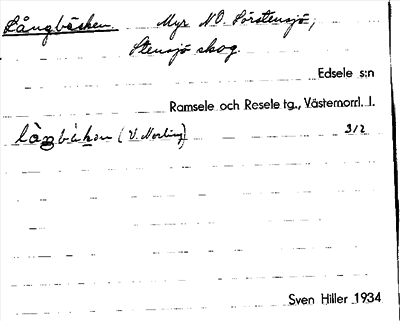 Långbäcken Myr N.O. Sörstensjö,
Stensjö skog.
Edsele s:n
Ramsele och Resele tg., Västernorrl. l.
(V. Norling) 3/2
Sven Hiller 1934